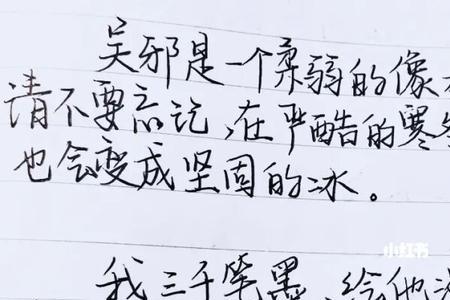 吴邪是一个柔弱的像
请不要忘记,在严酷的寒冬
也会变成坚固的冰。
我三千笔墨,给他
小红书